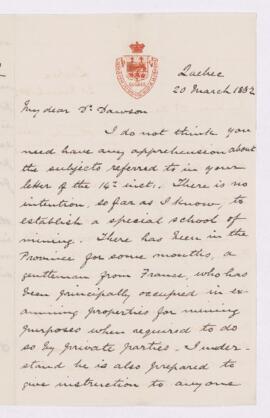 Quebec
20 March 1882
My dear Dr. Dawson
I do not think you
need have any apprehension about
the subjects referred to in your
letter of the 14th inst.. There is no
intention, so far as I know, to
establish a special school of
mining. There has been in the
Province for some months, a
gentleman from France, who has
been principally occupied in ex-
amining properties for mining
purposes when required to do
so by private parties. I under-
stand he is also prepared to
give instruction to anyone